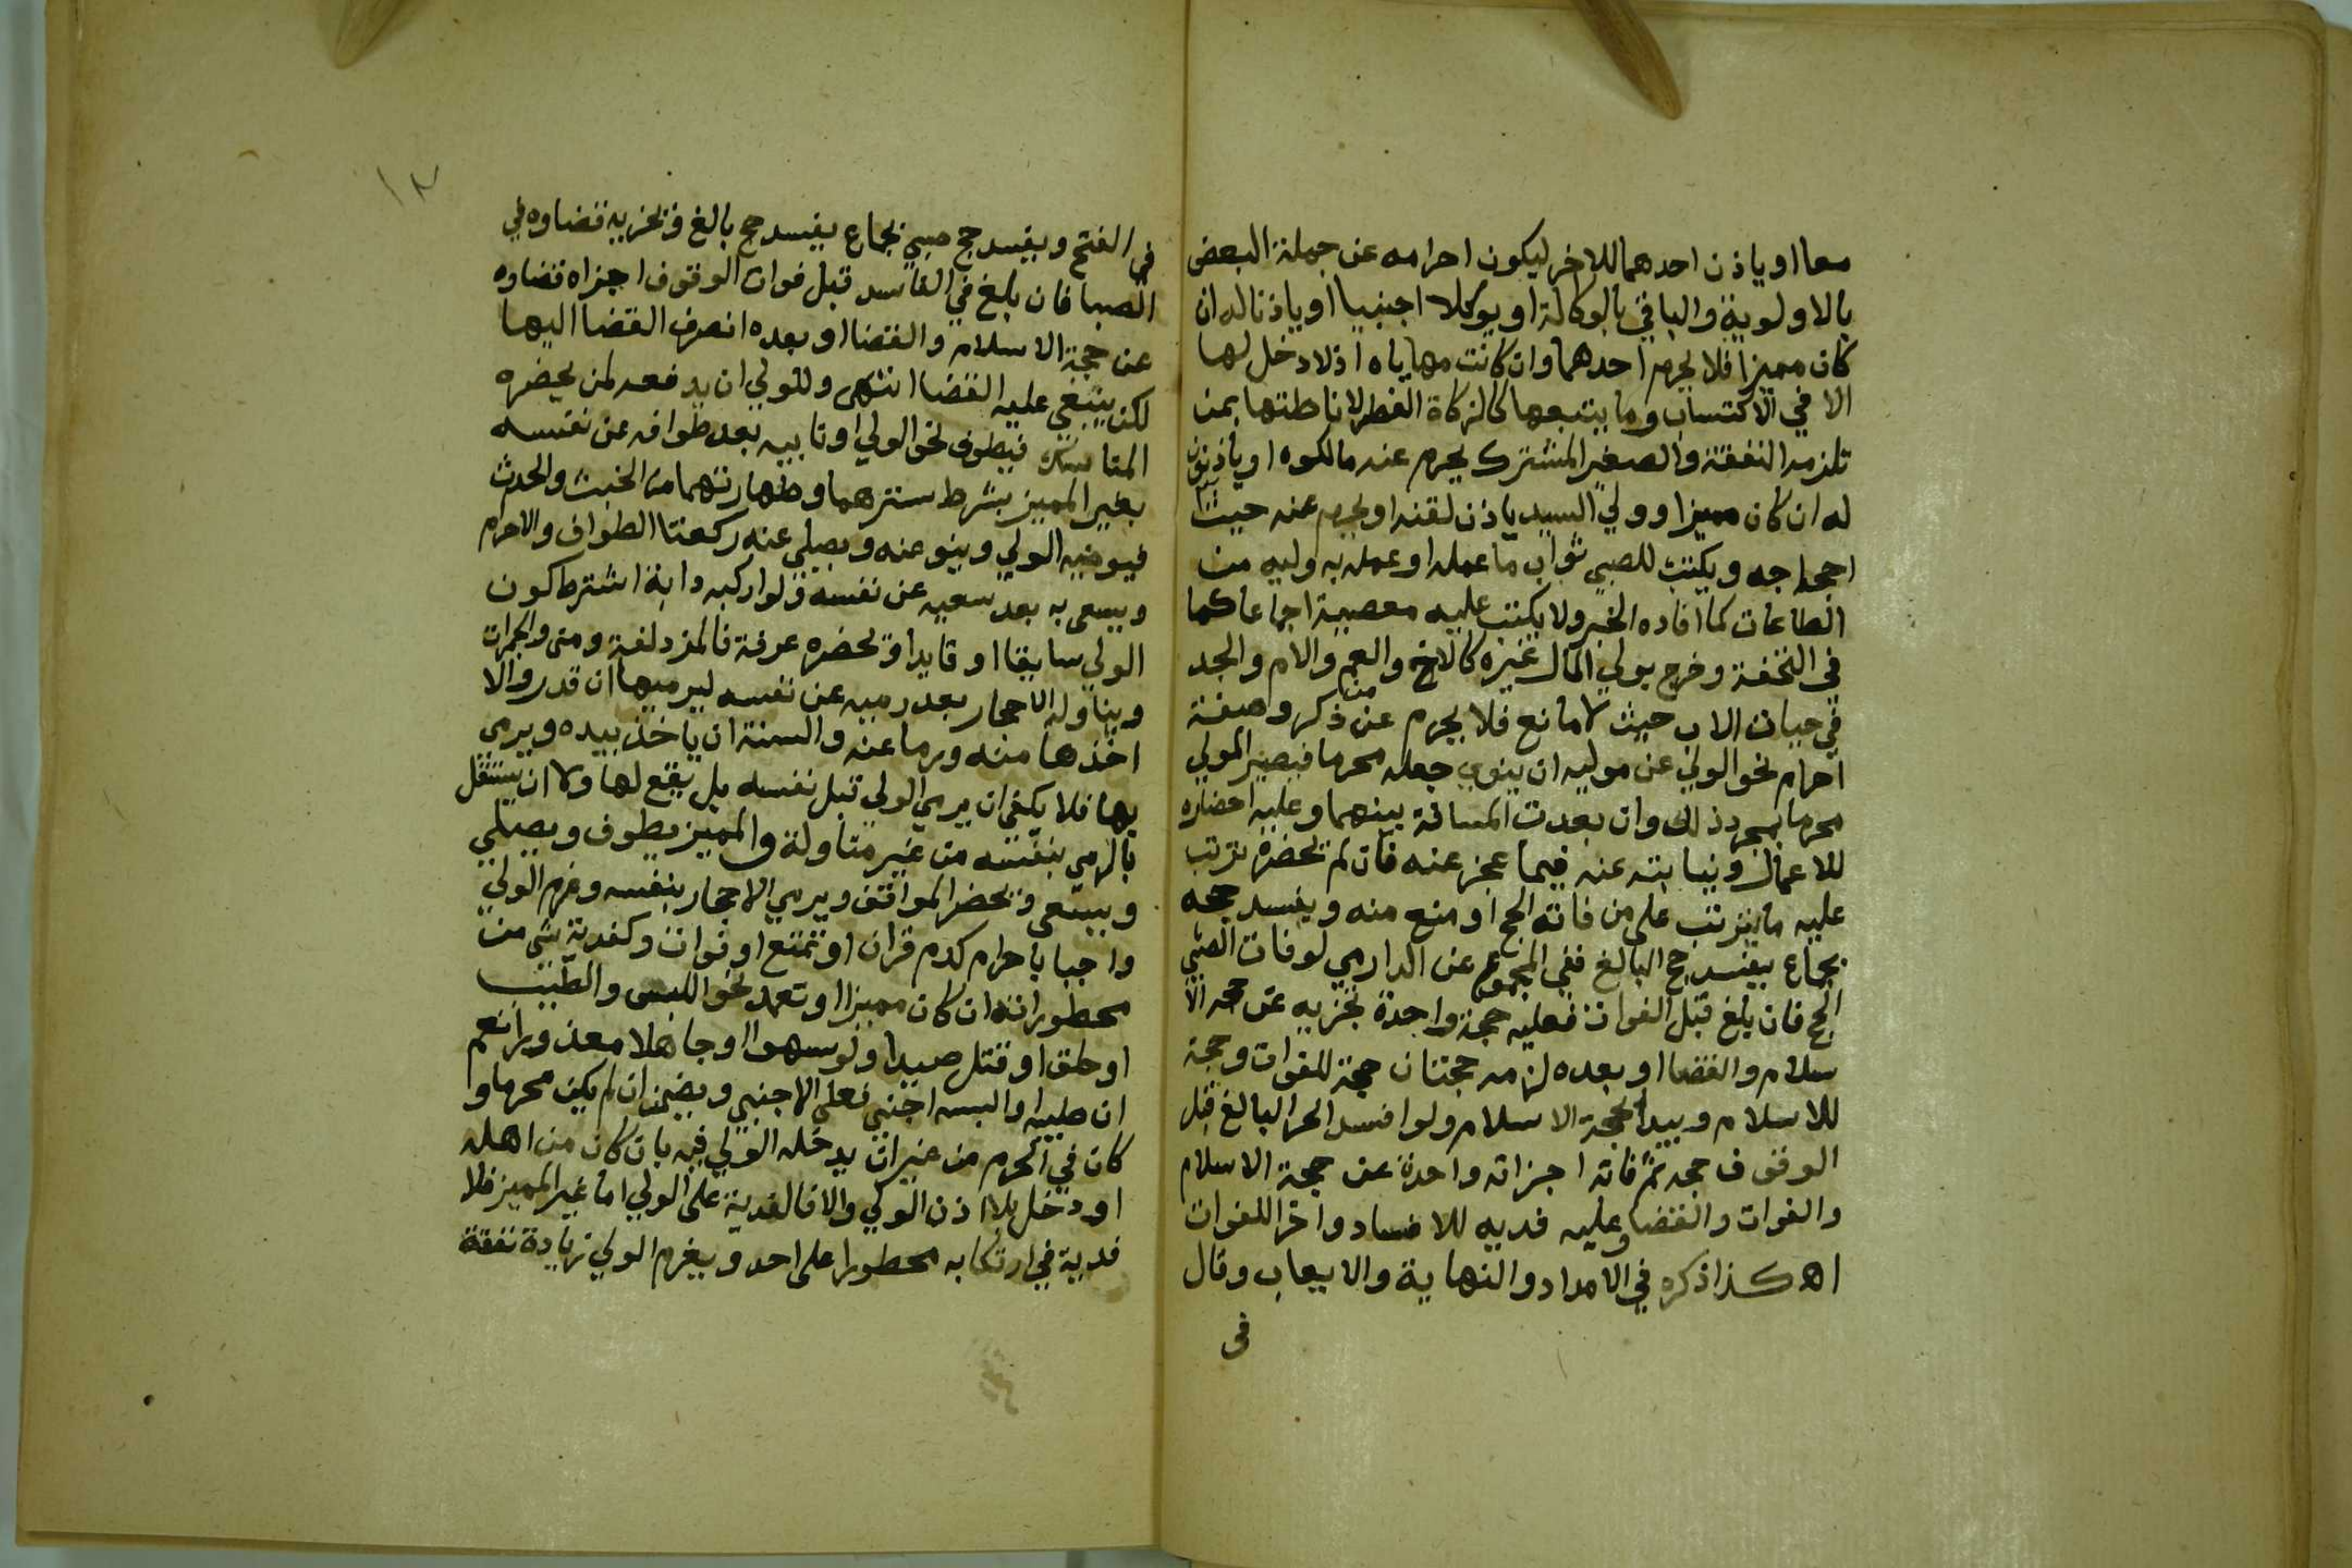 معا او ياذن احدهما للاخر ليكون احرامه عن جملة البعض
بالاولوية والباقي بالوكالة او يوكلا اجنبيا او ياذنا له ان
كان مميزا فلا يحرم احدهما وان كانت مهاياه اذ لا دخل لها
الا في الاكتساب وما يتبعها كالزكاة الفطر لاناطتها بمن
تلزمه النفقة والصغير المشترك يحرم عنه مالكوه او ياذنون
له ان كان مميزا وولي السيد ياذن لقنه او يحرم عنه حيث
احجاجه ويكتب للصبي ثواب ما عمله او عمله به وليه من
الطاعات كما افاده الخبر ولا يكتب عليه معصية اجماعا كما
في التحفة وخرج بولي المال غيره كالاخ والعم والام والجد
في حيات الاب حيث لا مانع فلا يحرم عن من ذكر وصفة
احرام نحو الولي عن موليه ان ينوي جعله محرما فيصير المولي
محرما بمجرد ذلك وان بعدت المسافة بينهما وعليه احضاره
للاعمال ونيابته عنه فيما عجز عنه فان لم يحضره ترتب
عليه ما يترتب على من فاته الحج او منع منه ويفسد حجه
بجماع يفسد حج البالغ ففي المجموع عن الدارمي لو فات الصبي
الحج فان بلغ قبل الفوات فعليه حجة واحدة تجزيه عن حجه الا
سلام والقضا او بعده لزمه حجتان حجة للفوات وحجة
للاسلام ويبدا بحجة الاسلام ولو افسد الحر البالغ قبل
الوقوف حجه ثم فاته اجزاته واحدة عن حجة الاسلام
والفوات والقضا وعليه فديه للافساد واخرا للفوات
اه كذا ذكره في الامداد والنهاية والايعاب وقال
في
١٢
في الفتح ويفسد حج صبي بجماع يفسد حج بالغ وتجزيه قضاوه في
الصبا فان بلغ في الفاسد قبل فوات الوقوف اجزاه قضاوه
عن حجة الاسلام والقضا او بعده انصرف القضا اليها
لكن يبقي عليه القضا انتهى وللولي ان يدفعه لمن يحضره
المناسك فيطوف نحو الولي او نايبه بعد طوافه عن نفسه
بغير المميز بشرط سترهما وطهارتهما من الخبث والحدث
فيوضيه الولي وينو عنه ويصلي عنه ركعتا الطواف والاحرام
ويسعى به بعد سعيه عن نفسه ولو اركبه دابة اشترط كون
الولي سايقا او قايدا ويحضره عرفة فالمزدلفة ومنى والجمرات
ويناوله الاحجار بعد رميه عن نفسه ليرميها ان قدر والا
اخذها منه ورما عنه والسنة ان ياخذ بيده ويرمي
بها فلا يكفي ان يرمي الولي قبل نفسه بل يقع لها ولا ان يستقل
بالرمي بنفسه من غير مناولة والمميز يطوف ويصلي
ويسعى ويحضر المواقف ويرمي الاحجار بنفسه وغرم الولي
واجبا باحرام كدم قران او تمتع او فوات وكفدية شي من
محظوراته ان كان مميزا او تعمد نحو اللبس والطيب
او حلق او قتل صيدا ولو سهوا او جاهلا معذورا نعم
ان طيبه او البسه اجنبي فعلى الاجنبي ويضمن ان لم يكن محرما و
كان في الحرم من غير ان يدخله الولي فيه بان كان من اهله
او دخل بلا اذن الولي والا فالفدية على الولي اما غير المميز فلا
فدية في ارتكابه محظورا على احد ويغرم الولي زيادة نفقة